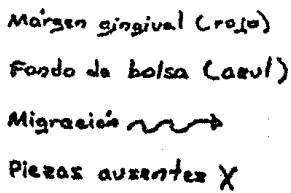 Márgen gingival (rojo)
Fondo de bolsa (azul)
Migración
Piezas ausentes X